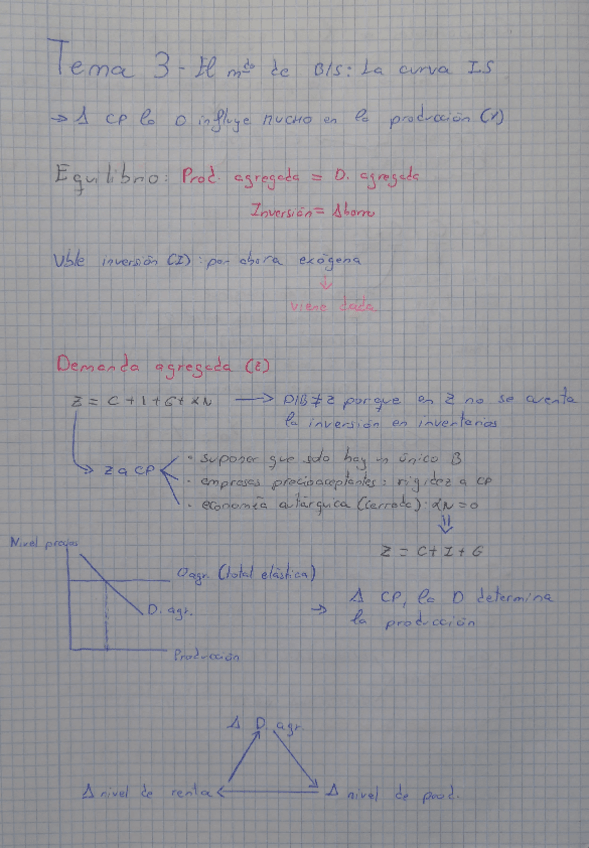 Tema 3 - El mdo de B/S: La curva IS
→ A CP la D influye MUCHO en la producción (Y)
Equilibrio: Prod. agregada = D. agregada
Inversión = Ahorro
Vble inversión (I): por ahora exógena
↓
viene dada
Demanda agregada (Z)
Z = C + I + G + XN → PIB ≠ Z porque en Z no se cuenta
la inversión en inventarios
Z a CP
· suponer que solo hay un único B
· empresas precioaceptantes: rigidez a CP
· economía autárquica (cerrada): XN = 0
⇓
Z = C + I + G
Nivel precios
Oagr (total elástica)
D. agr.
Producción
→ A CP, la D determina
la producción
Δ D. agr.
Δ nivel de renta ← Δ nivel de prod.